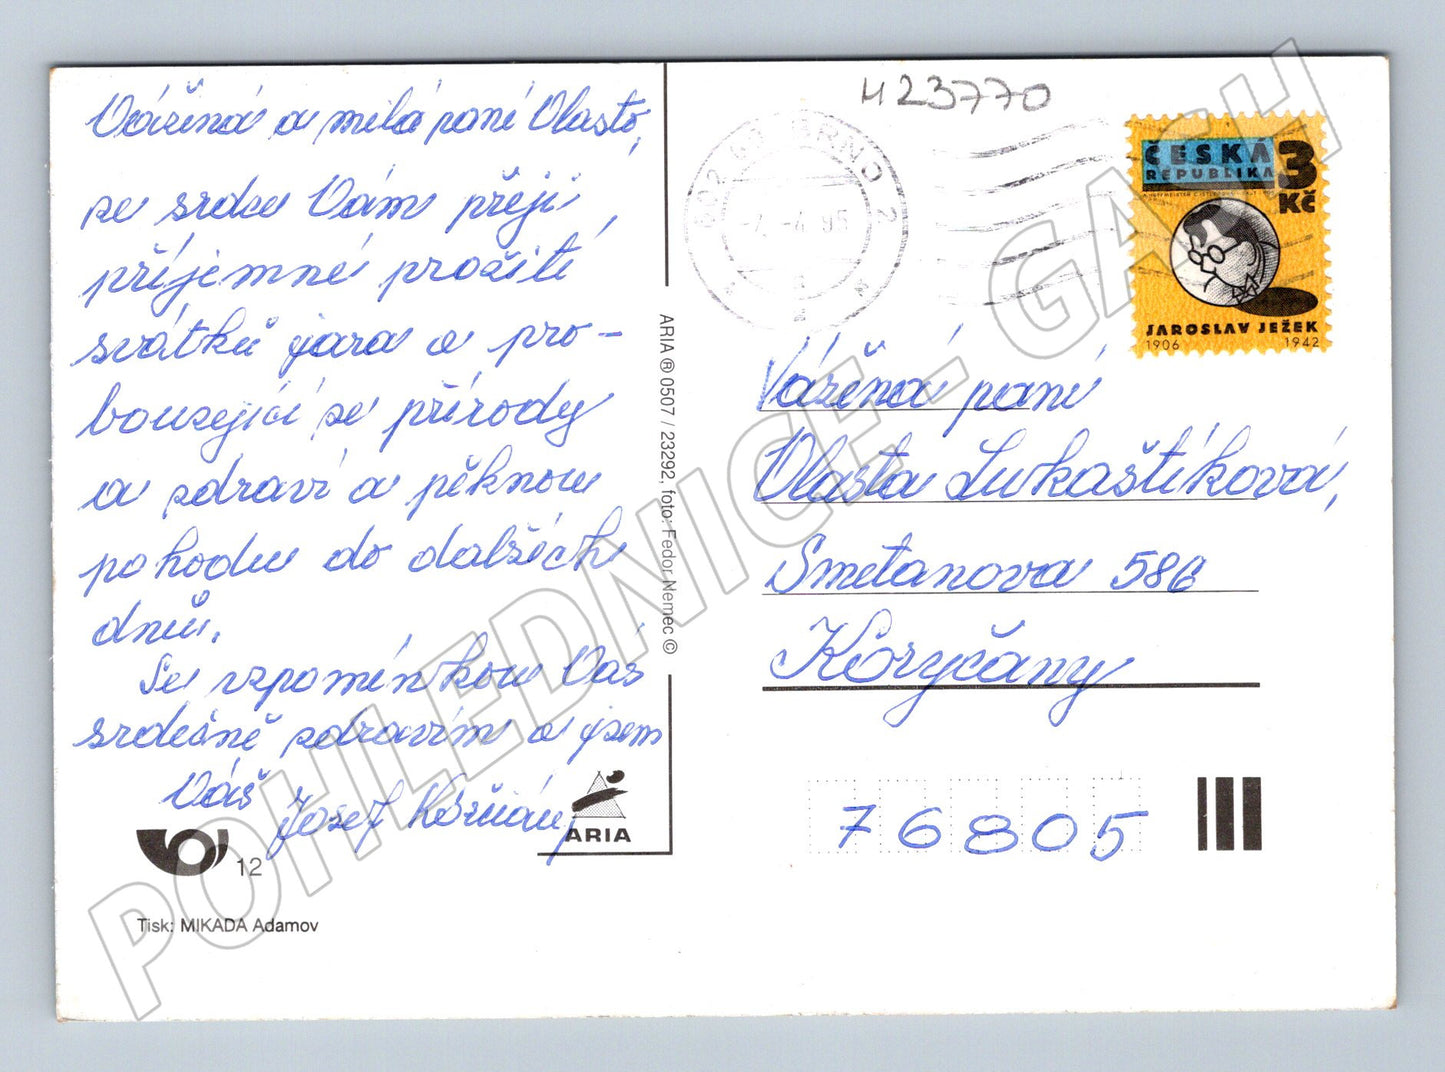 Vážená a milá paní Vlasto,
ze srdce Vám přeji
příjemné prožití
svátků jara a pro-
bouzející se přírody
a zdraví a pěknou
pohodu do dalších
dnů.
Se vzpomínkou Vás
srdečně zdravím a jsem
Váš
Josef
12
Tisk: MIKADA Adamov
ARIA
ARIA ® 0507 / 23292, foto: Fedor Nemec ©
H23770
602 00 BRNO 2
-4.-4.95
ČESKÁ
REPUBLIKA
3
Kč
JAROSLAV JEŽEK
1906 1942
Vážená paní
Vlasta Lukaštíková,
Smetanova 586
Koryčany
76805
POHLEDNICE - GASH